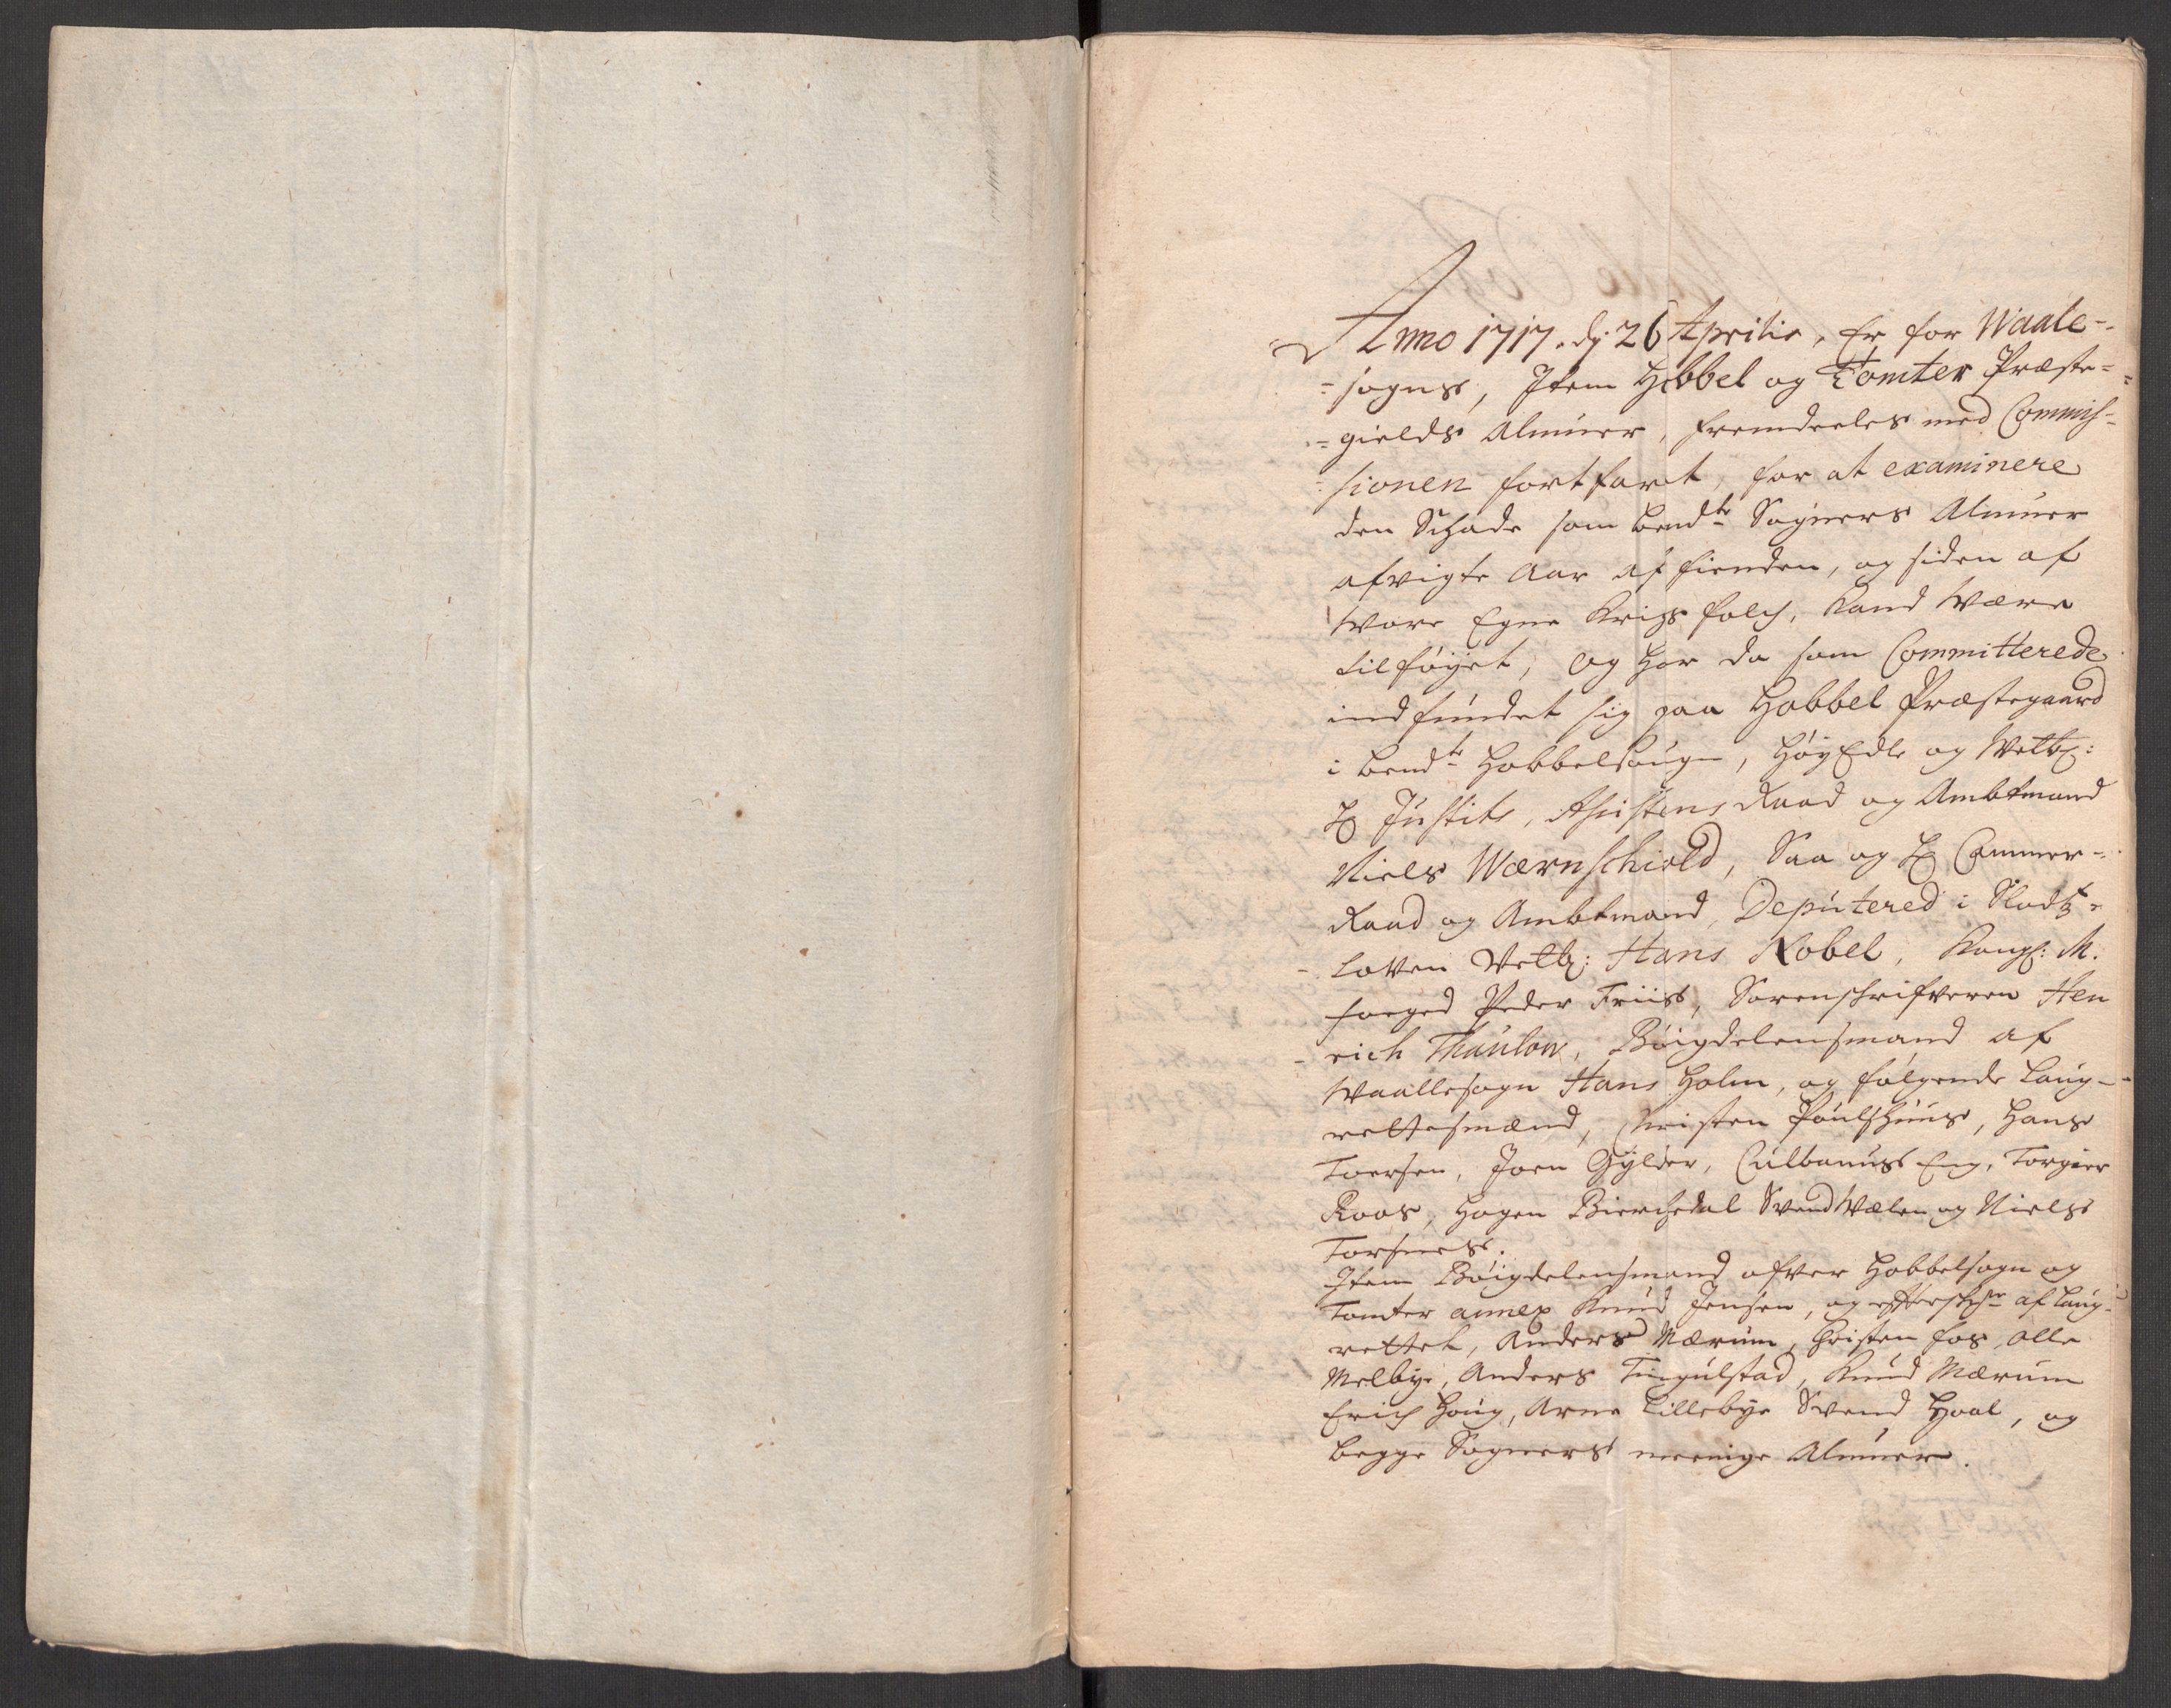 Anno 1717. dj. 26 Aprilis, Er for Waale-
-sogns, Item Hobbel og Tomter Præste-
-gields Almuer, fremdeeles med Commis-
-sionen fortfaret, for at examinere
den Schade som bemdte Sogners Almuer
afvigte Aar af fienden, og siden af
Wore Egne Krigs folch, Kand Være
tilføyet, og har da som Committerede
indfundet sig paa Hobbel Præstegaard
i bemdte Hobbelsougn, HøyEdle og Velb:
H Justits, Assistens Raad og Ambtmand
Niels Wærnschiold, Saa og H Cammer-
Raad og Ambtmand, Deputered i Slodtz-
Loven Velb: Hans Nobel, Kongl: M.
foeged Peder Friis, Sorenschrifveren Hen
-rich Thaulow, Bøigdelensmand af
Waallesogn Hans Holm, og følgende Laug-
rettesmænd, Christen Poulshuus, Hans
Toersen, Joen Gylder, Culbanus Eng, Torgier
Roos, Hagen Bierchedal Svend Wælen og Niels
Torsnes.
Item Bøigdelensmand ofver Hobbelsogn og
Tomter annex Knud Jensen, og effterschr af Laug-
rettet, Anders Mærum, Christen fos, Olle
Melbye, Anders Tingulstad, Knud Mærum
Erich Houg, Arne Lillebye Svend Hoel, og
begge Sogners meenige Almuer.